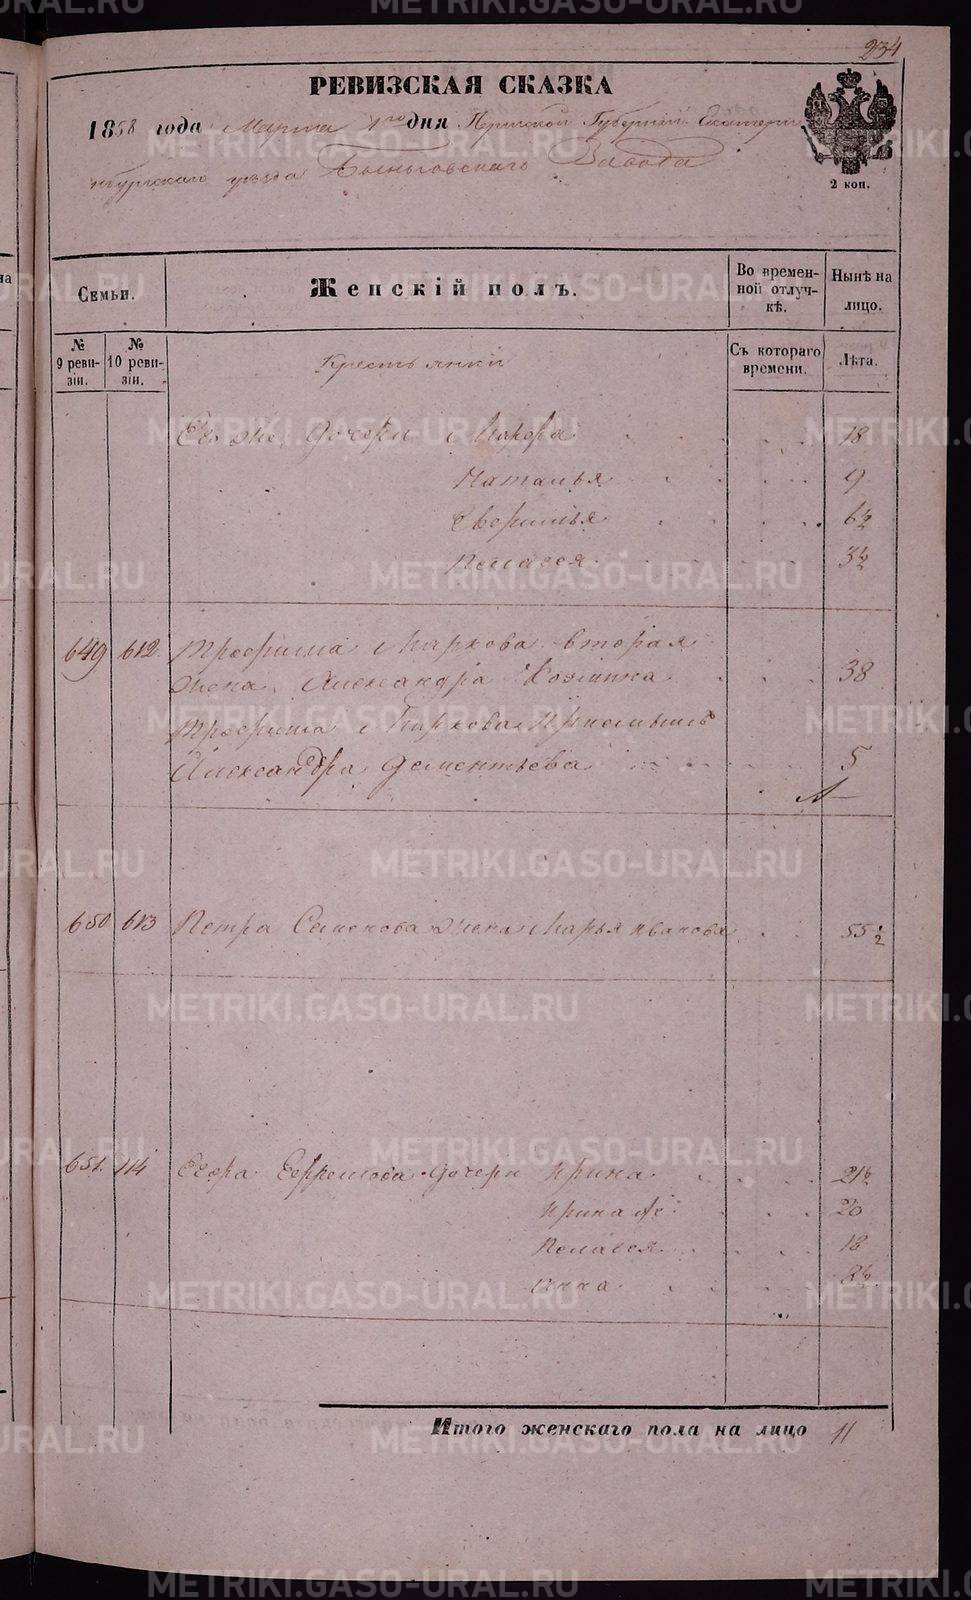 234
РЕВИЗСКАЯ СКАЗКА
1858 года Марта 1го дня Пермской Губернии Екатерин
нбургскаго уезда Быньговскаго Завода
2 коп.
Семьи.
Женскій полъ.
Во временной отлучкѣ.
Нынѣ на лицо.
№ 9 ревизіи.
№ 10 ревизіи.
Крестьянки
Съ котораго времени.
Лѣта.
Его же дочери Мавра 18
Наталья 9
6½
Пелагея 3½
649 612. Трофима Маркова вторая
жена Александра 38
Трофима Маркова
Александра Дементьева 5
650 613 Петра Семенова жена Марья Иванова 55½
651. 114 Егора Ефремова дочери Ирина 21½
Ирина же 20
Пелагея 18
Анна
Итого женскаго пола на лицо 11
METRIKI.GASO-URAL.RU